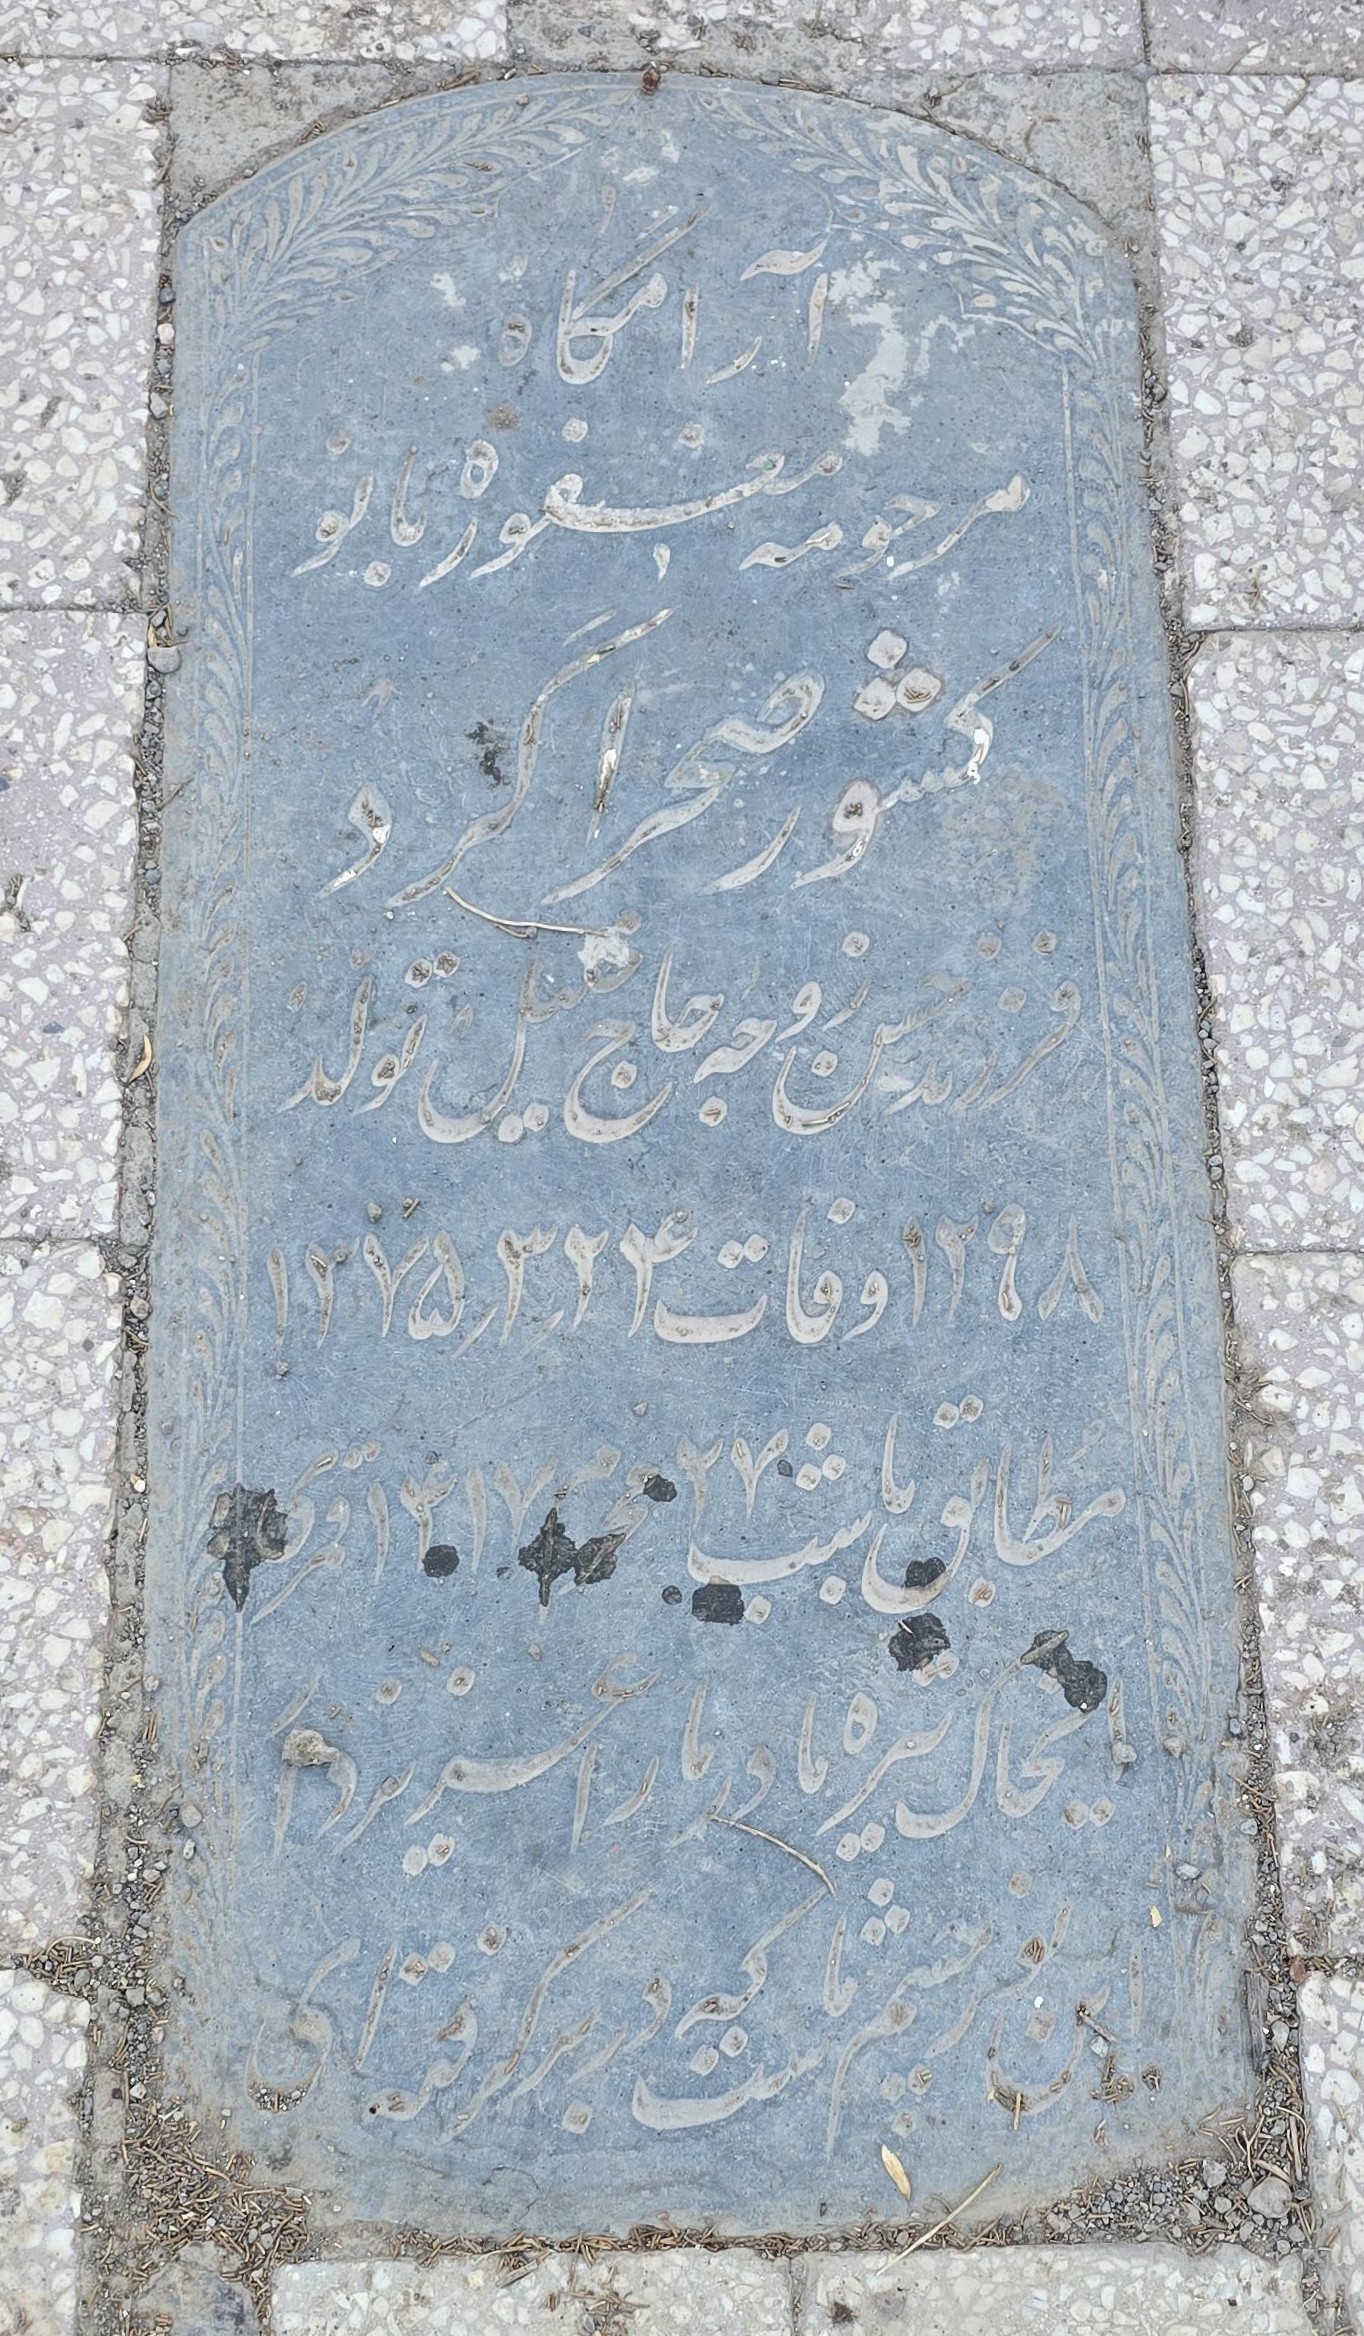 آرامگاه
مرحومه مغفوره بانو
کشور صحراگرد
فرزند زوجه حاج خلیل تولد
۱۲۹۸ وفات ۲۴ر۳ر۱۳۷۵
مطابق با شب ۲۷ محرم ۱۴۱۷ قمری
ایخاک تیره مادر ما را عزیز دار
این نور چشم ماست که در بر گرفته ای